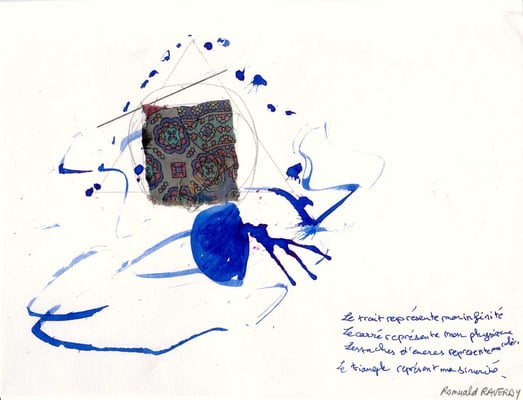 Le trait représente mon infinité
Le carré représente mon physique
Les taches d'encres représente
Le triangle représent ma sincérité
Romuald RAVERDY